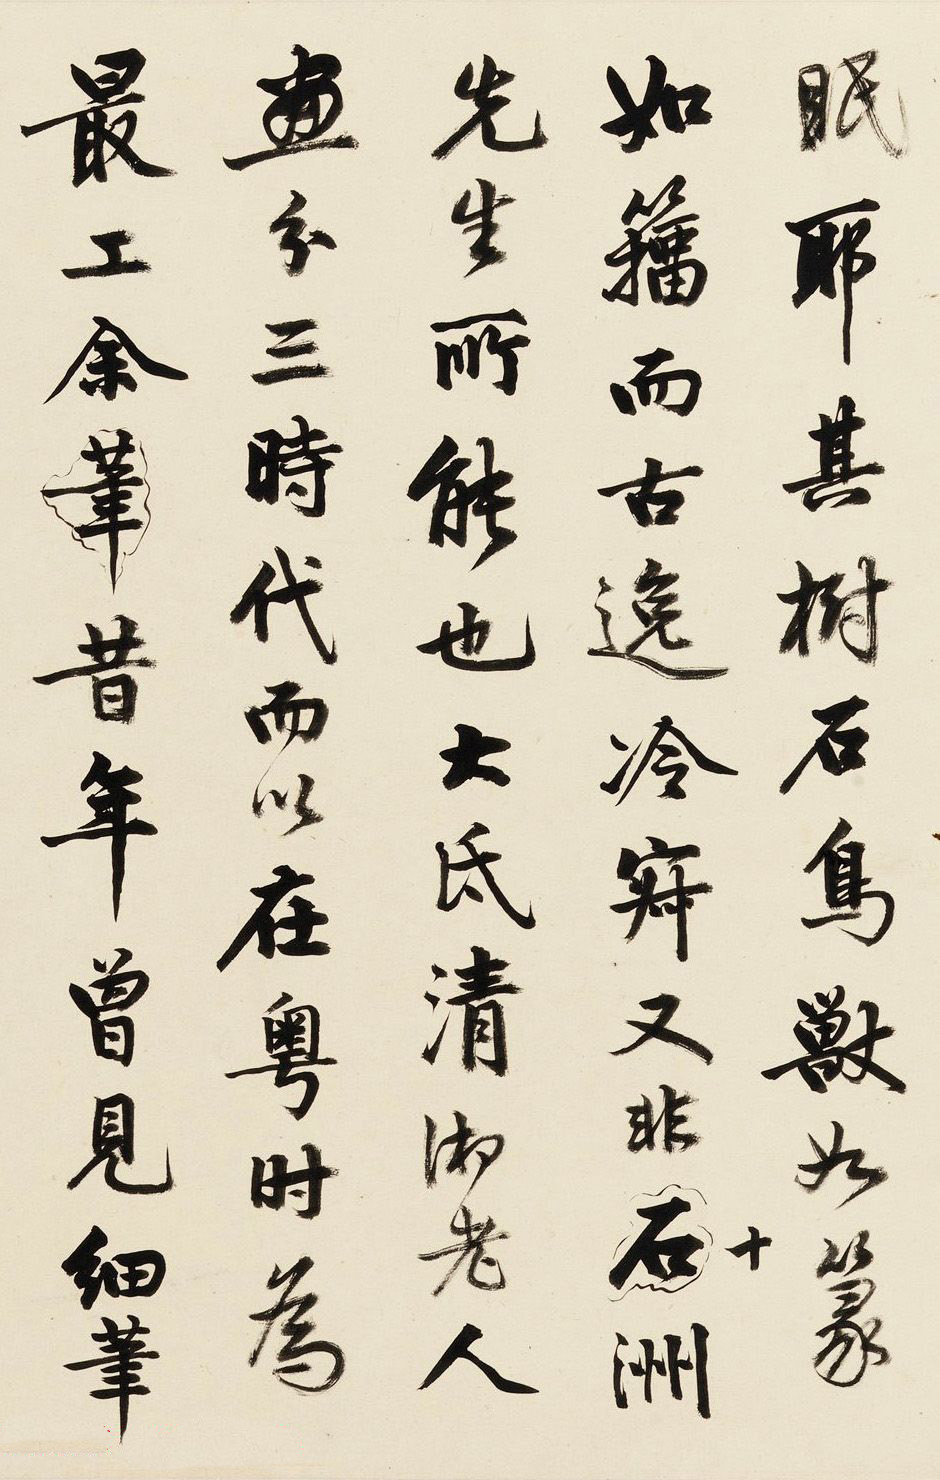 眠耶其樹石鳥獸如篆
如籀而古逸冷寂又非石十洲
先生所能也大氐清湘老人
畫分三時代而以在粵时為
最工余筆昔年曾見細筆